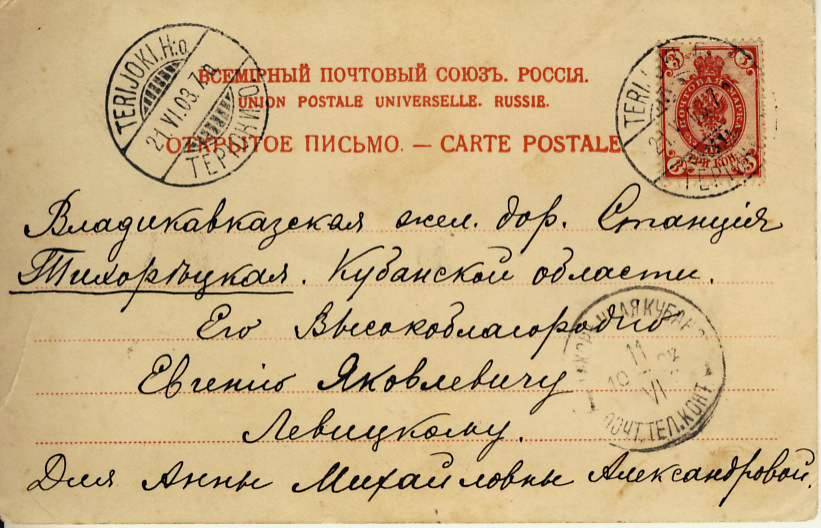 ВСЕМІРНЫЙ ПОЧТОВЫЙ СОЮЗЪ. РОССІЯ.
UNION POSTALE UNIVERSELLE. RUSSIE.
ОТКРЫТОЕ ПИСЬМО. — CARTE POSTALE
TERIJOKI.H:o
21.VI.03.7
ТЕРІОКИ
TERI
3 3
ПОЧТОВАЯ МАРКА
ТРИ КОП.
3 3
Владикавказская жел. дор. Станція
Тихорѣцкая. Кубанской области.
Его Высокоблагородію
Евгенію Яковлевичу
Левицкому.
Для Анны Михайловны Александровой.
11
VI
ПОЧТ.ТЕЛ.КОНТ